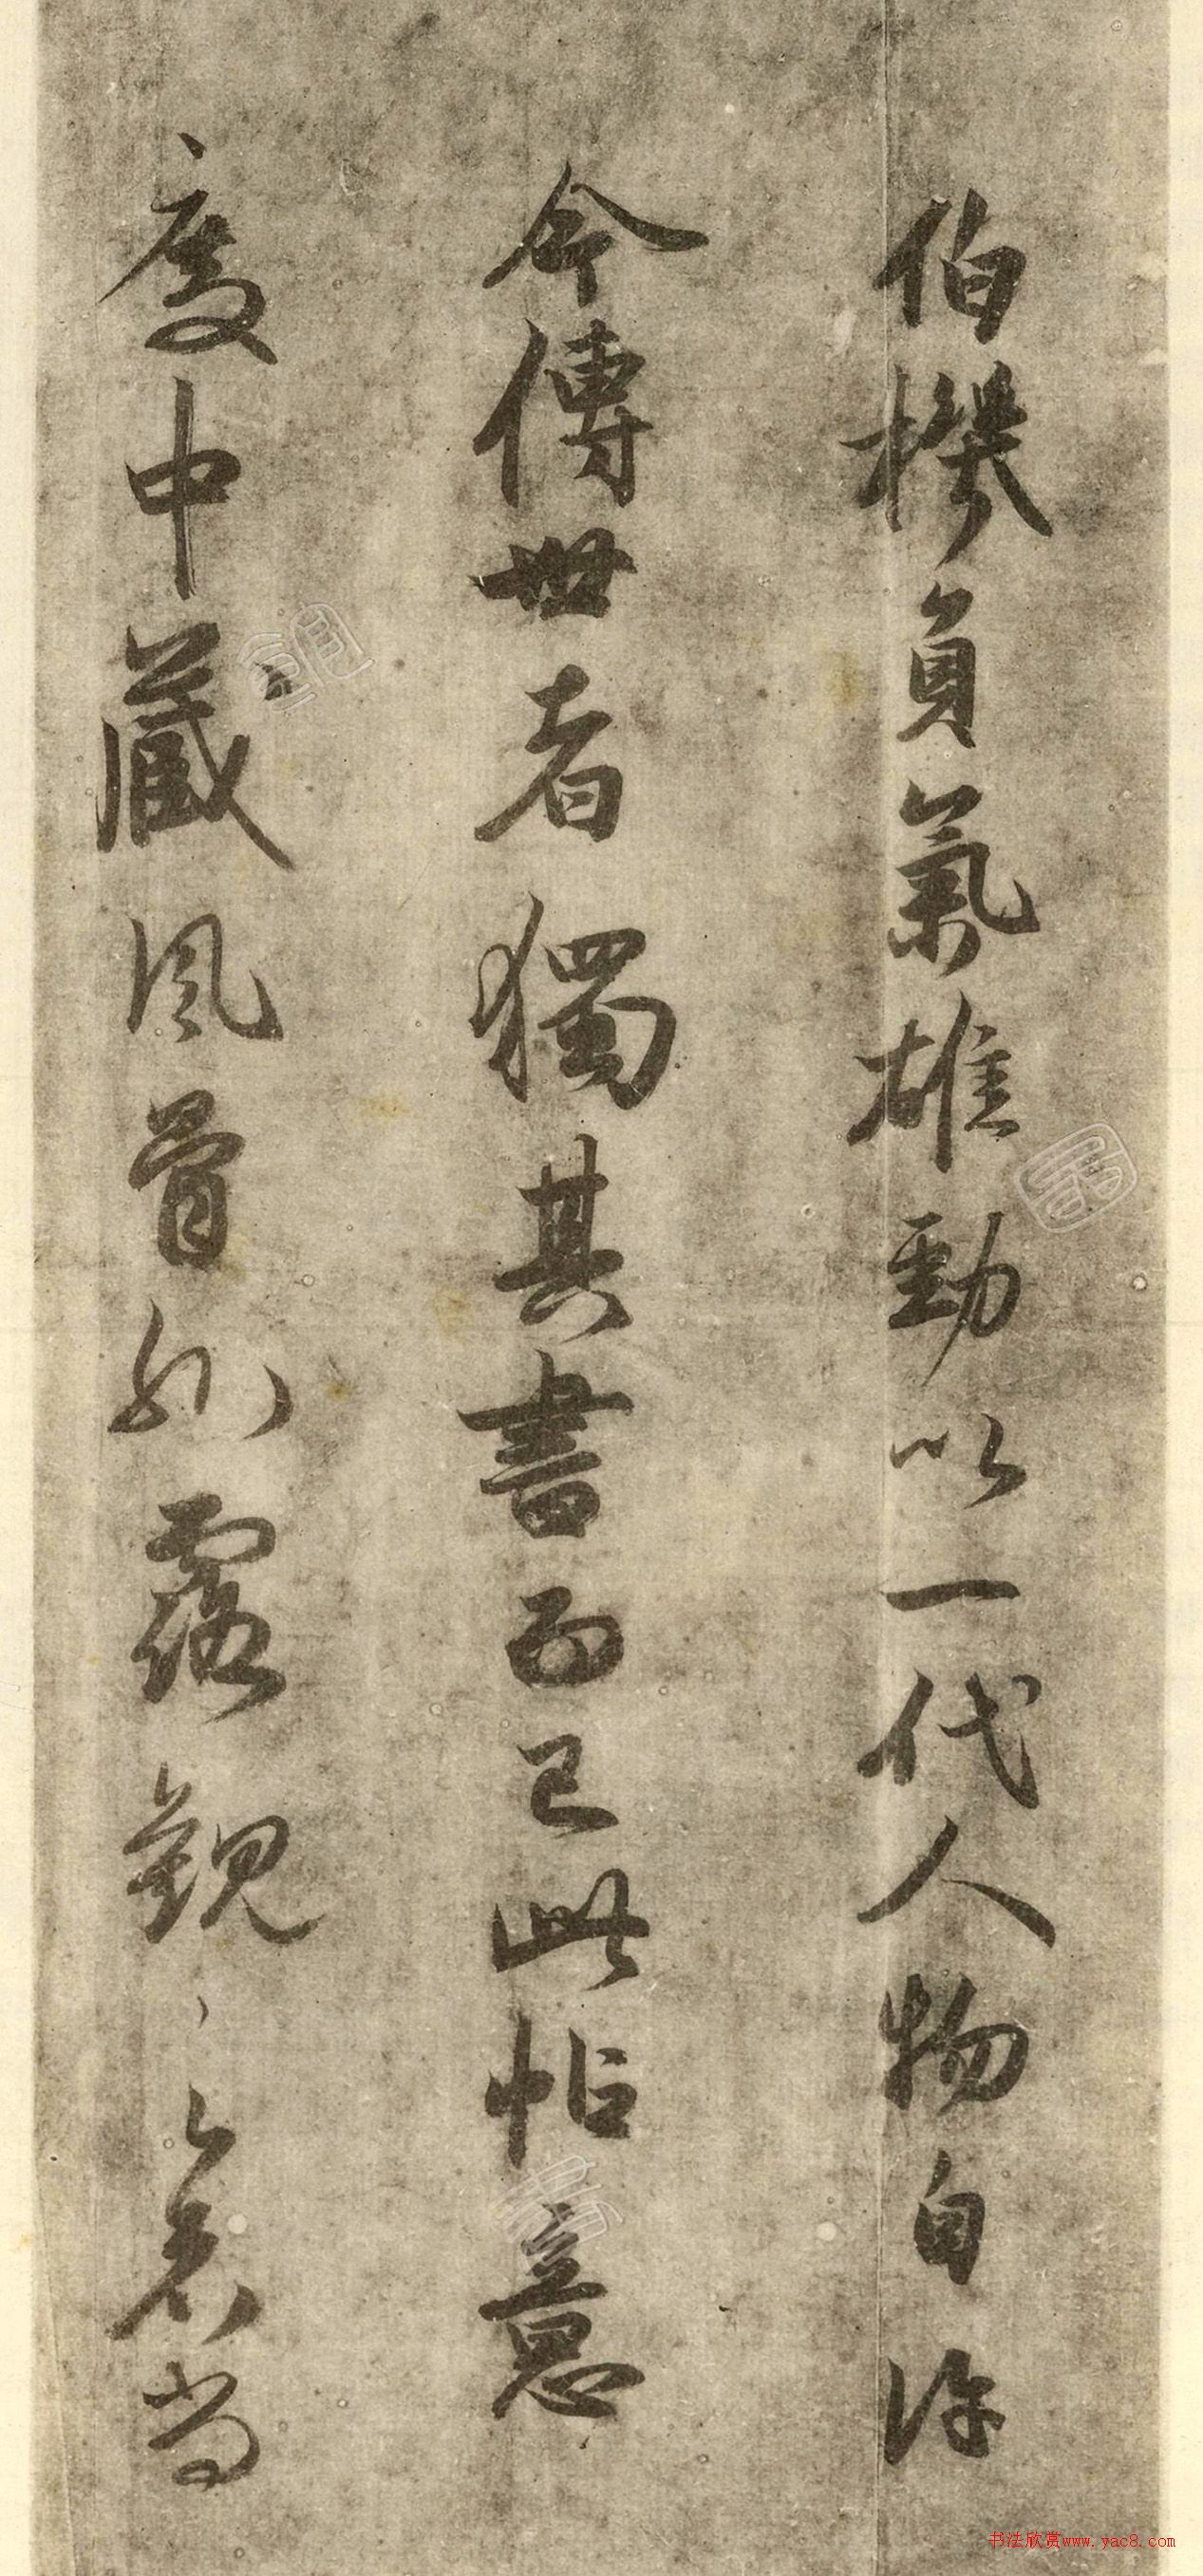 伯機負氣雄勁以一代人物自許
今傳世者獨其書而已此帖意
度中藏風骨外露觀之者尚
书法欣赏www.yac8.com